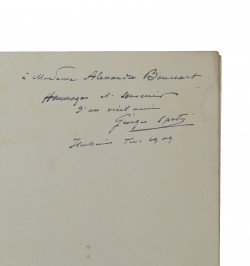 à Madame Alexandre Bourcart
Hommages et souvenir
d'un vieil ami
Georges Spetz
1909